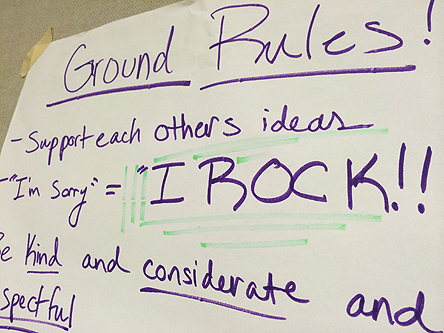 Ground Rules!
- Support each others ideas
- "I'm Sorry" = "I ROCK!!
Be Kind and considerate and
spectful